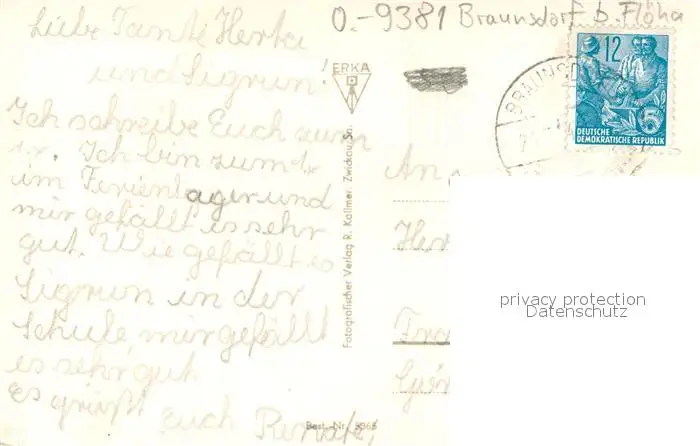 O.-9381 Braunsdorf b. Flöha
Liebe Tante Herta
und Sigrun!
Ich schreibe Euch zum
1x. Ich bin zum 1x
im Ferienlager und
mir gefällt es sehr
gut. Wie gefällt es
Sigrun in der
Schule, mir gefällt
es sehr gut.
Es grüßt Euch Renate,
ERKA
Fotografischer Verlag R. Kallmer, Zwickau Sa.
Best.-Nr. 5365
BRAUNSD
12
DEUTSCHE
DEMOKRATISCHE REPUBLIK
5
An
Her
privacy protection
Datenschutz